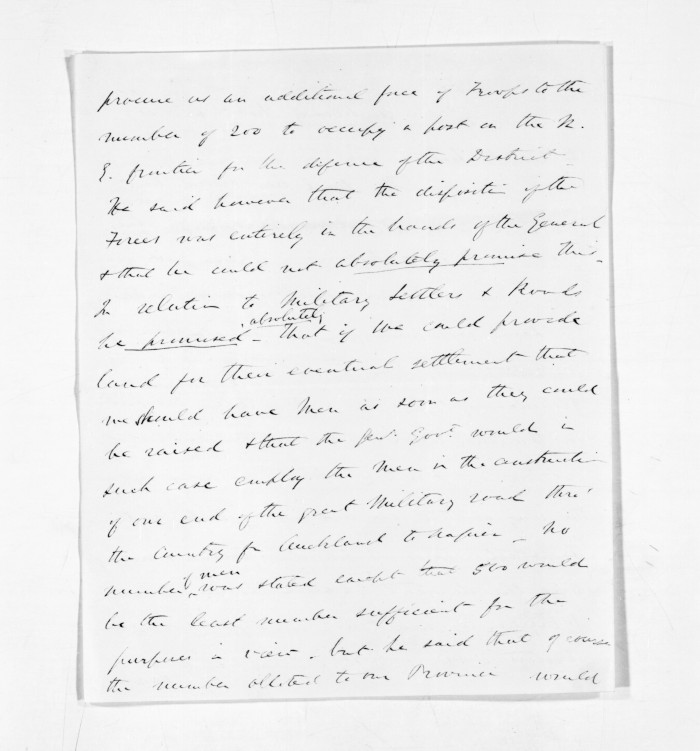 procure us an additional force of Troops to the
number of 200 to occupy a post on the N.
E. frontier for the defence of the District
He said however that the disposition of the
Forces was entirely in the hands of the General
& that he could not absolutely promise this.
In relation to Military Settlers & Roads
he promised absolutely - that if we could provide
land for their eventual settlement that
we should have men as soon as they could
be raised & that the Genl. Govt. would in
such case employ the men in the construction
of one end of the great Military road thro'
the Country fr Auckland to Napier - No
number of men was stated except that 500 would
be the least number sufficient for the
purposes in view - but he said that of course
the number alloted to our Province would